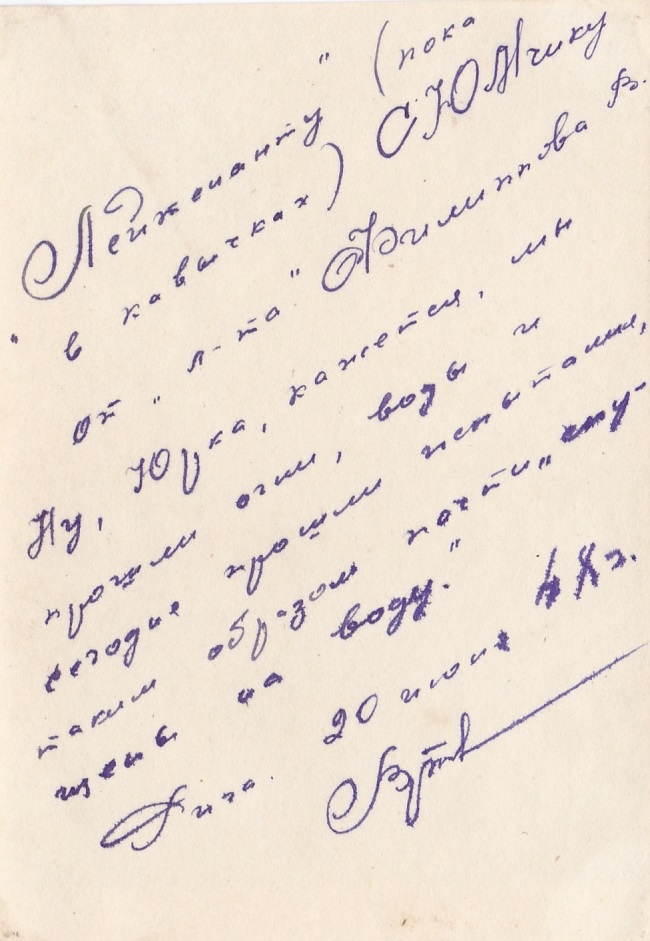 „Лейтенанту" (пока
в кавычках)
от „л-та" Филиппова В.
Ну, Юрка, кажется, мы
прошли огни, воды и
сегодня прошли испытания,
таким образом почти „спу-
щены на воду."
Рига. 20 июня 48г.